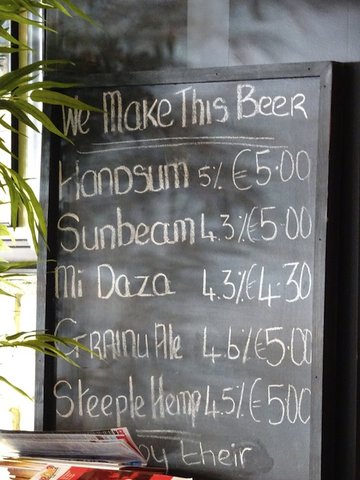 We Make This Beer
Handsum 5% €5.00
Sunbeam 4.3% €5.00
Mi Daza 4.3% €4.30
Grainu Ale 4.6% €5.00
Steeple Hemp 4.5% €500
by their